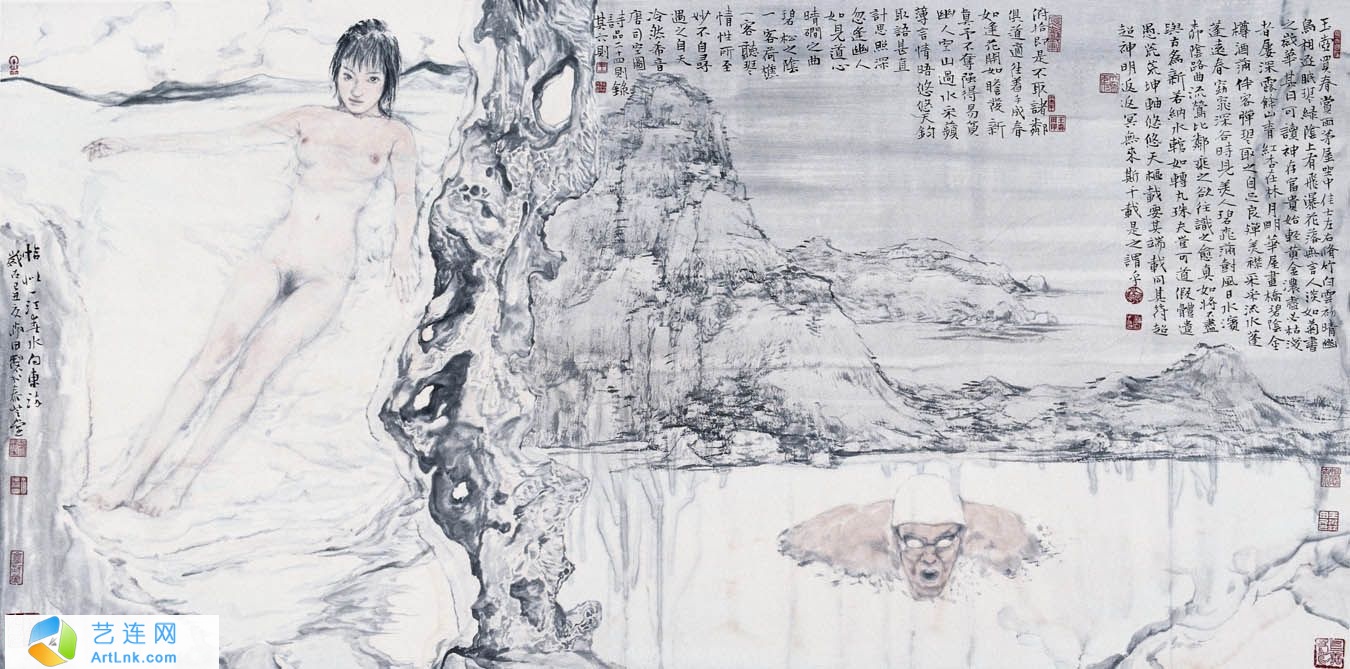 玉壺買春賞雨茅屋坐中佳士左右脩竹白雲初晴幽
鳥相逐眠琴綠陰上有飛瀑花落無言人淡如菊書
之歲華其曰可讀神存富貴始輕黃金濃盡必枯淺
者屢深露餘山青紅杏在林月明華屋畫橋碧陰金
樽酒滿伴客彈琴取之自足良殫美襟采采流水蓬
蓬遠春窈窕深谷時見美人碧桃滿樹風日水濱
柳陰路曲流鶯比鄰乘之欲往識之愈真如將不盡
與古為新若納水輨如轉丸珠夫豈可道假體遺
愚荒荒坤軸悠悠天樞載要其端載同其符超
超神明返返冥無來斯千載是之謂乎
俯拾即是不取諸鄰
俱道適往着手成春
如逢花開如瞻歲新
真予不奪強得易貧
幽人空山過水采蘋
薄言情晤悠悠天鈞
取語甚直
計思匪深
忽逢幽人
如見道心
晴澗之曲
碧松之陰
一客荷樵
一客聽琴
情性所至
妙不自尋
遇之自天
冷然希音
唐司空圖
詩品二十四則錄
其六則
恰似一江春水向東流
歲在己丑
艺连网
ArtLnk.com